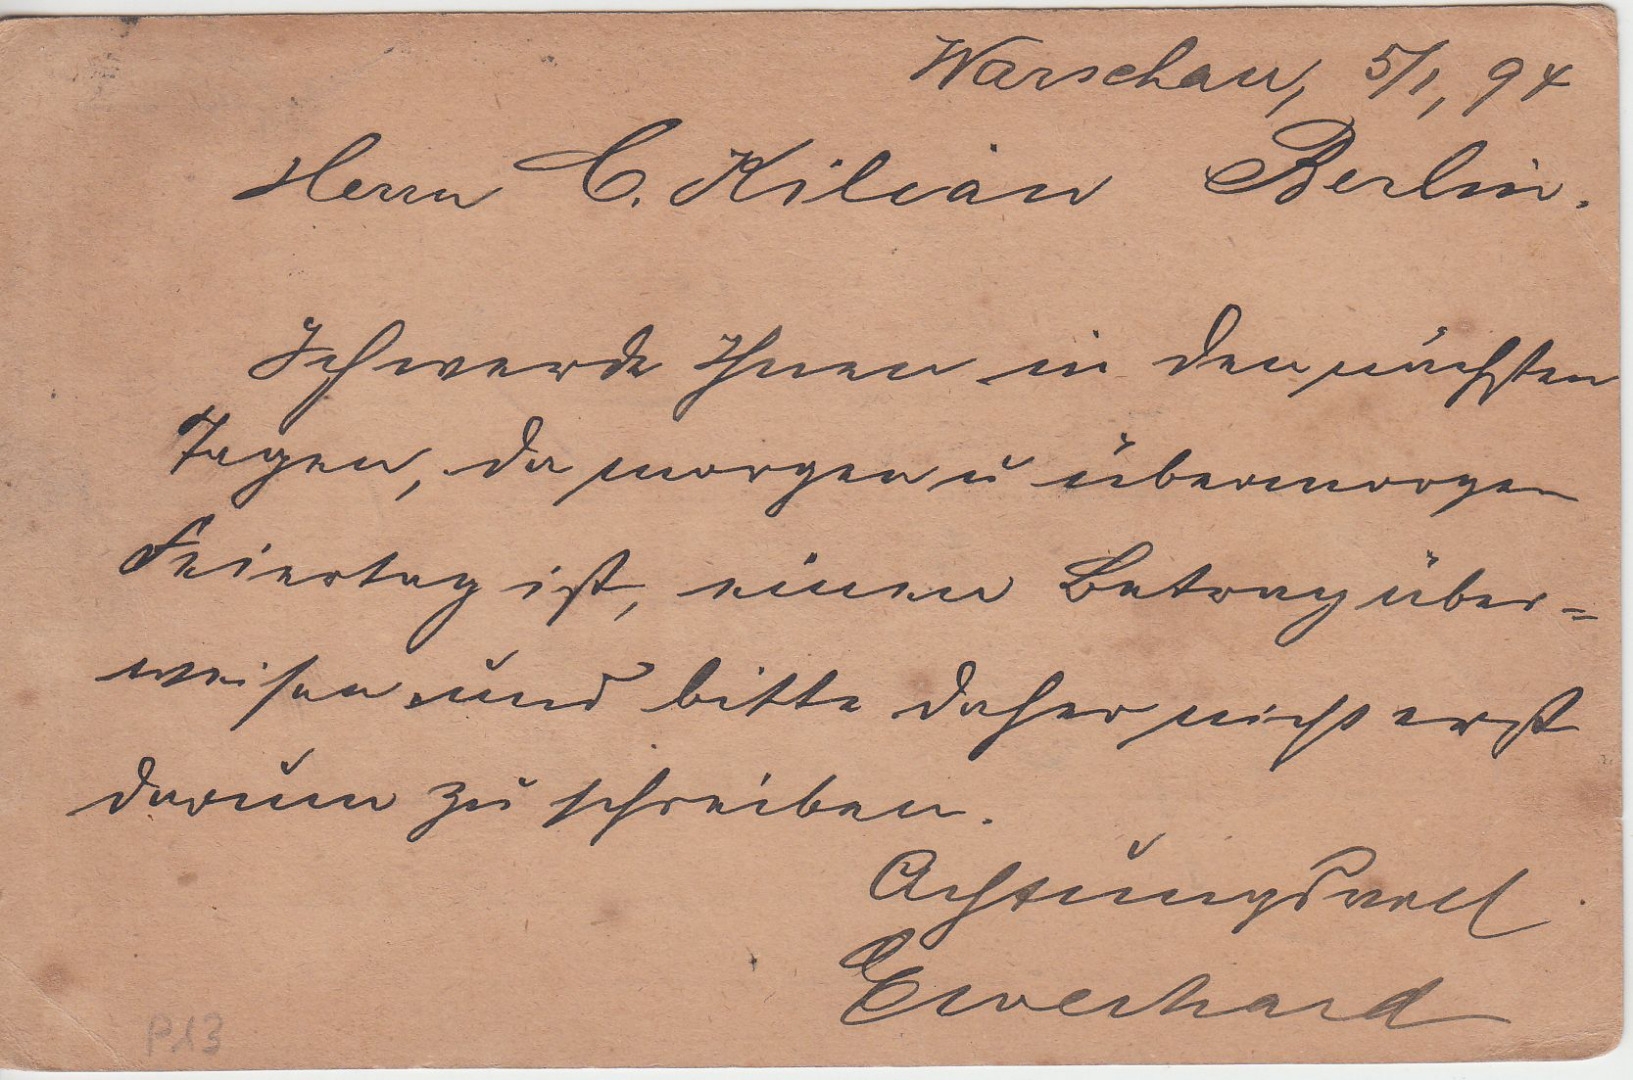 Warschau, 5/1, 94
Herrn C. Kilian Berlin.
Ich werde Ihnen in den nächsten
Tagen, da morgen u übermorgen
Feiertag ist, einen Betrag über=
weisen und bitte daher nicht erst
darum zu schreiben.
Achtungsvoll
Ewerhard
P.13